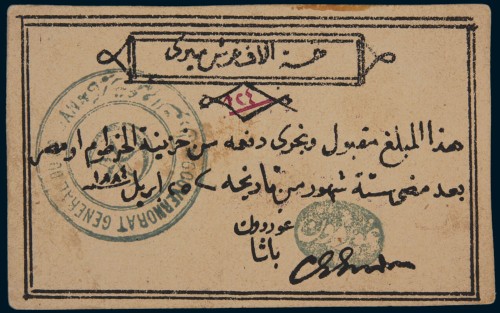 خمسة الاف غرش ميرى
هذا المبلغ مقبول ويجرى دفعه من خزينة الخرطوم او مصر
بعد مضى ستة شهور من تاريخه ٢٥ ابريل ١٨٨٤
غوردون
باشا
GOUVERNORAT GENERAL DU